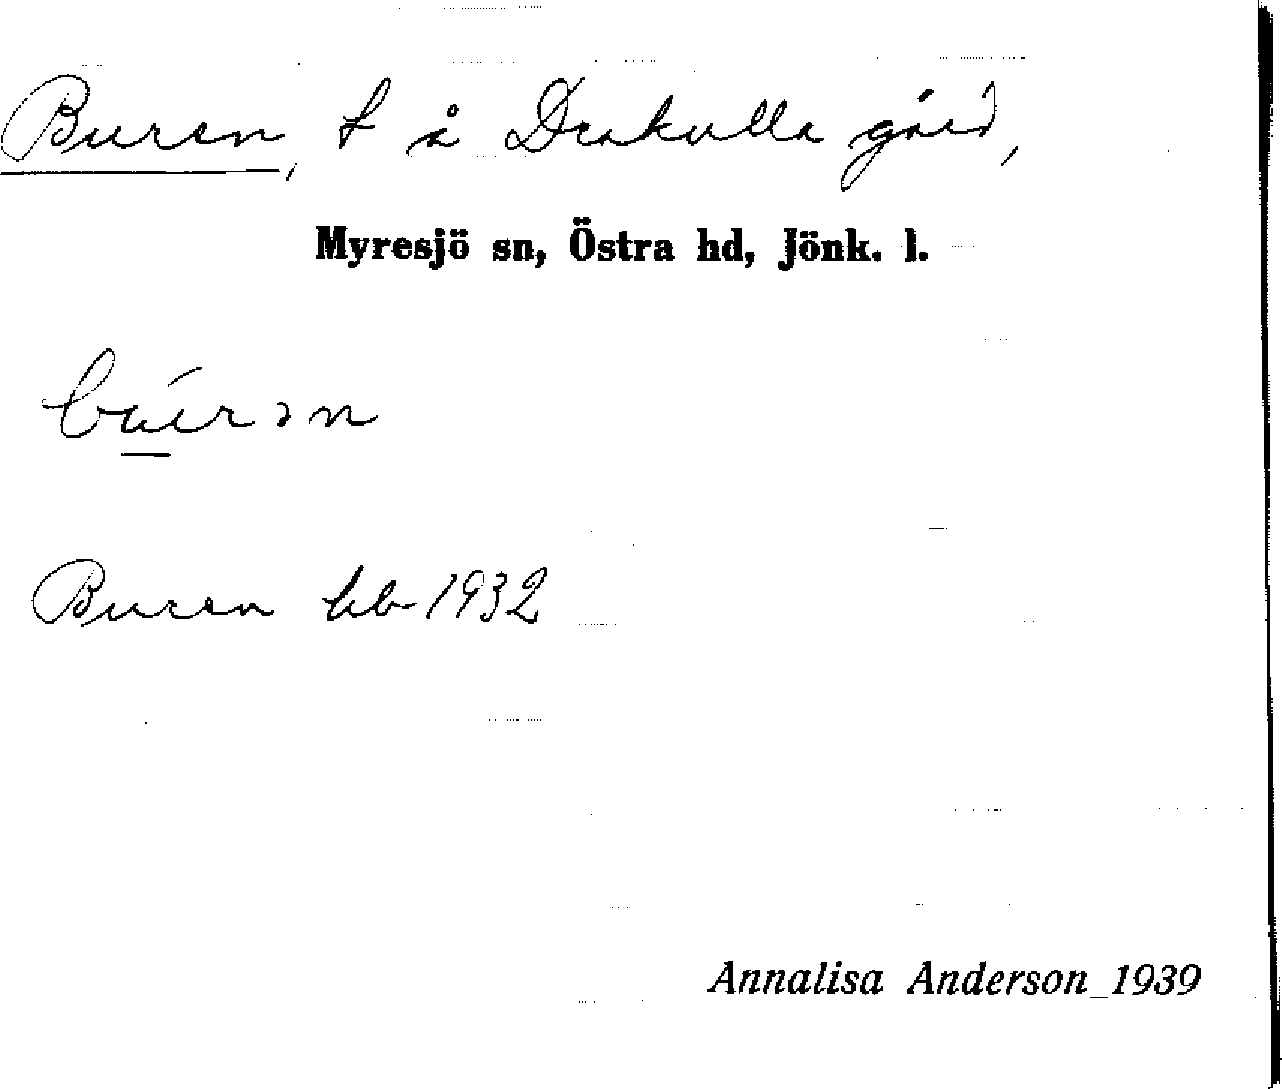 Buren, t å Drakulla gård,
Myresjö sn, Östra hd, Jönk. l.
Buren hb 1932
Annalisa Anderson 1939